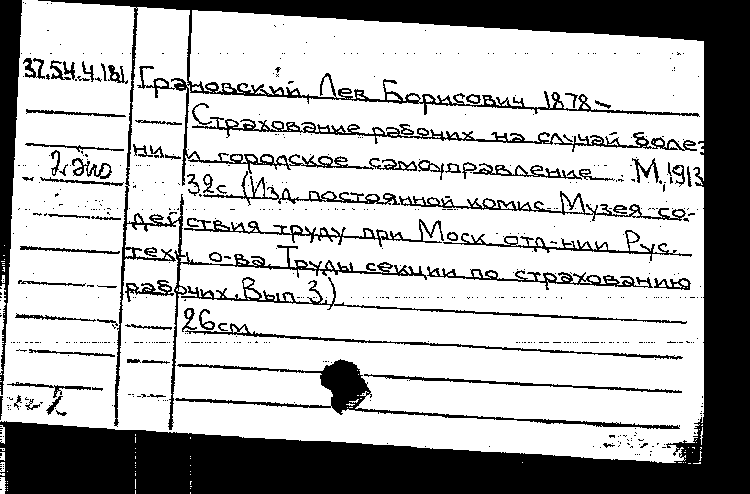 37.54.4.181 Грановский, Лев Борисович, 1878–
Страхование рабочих на случай болез
ни и городское самоуправление М, 1913
2 экз
32с (Изд. постоянной комис. Музея со-
действия труду при Моск. отд-нии Рус.
техн. о-ва. Труды секции по страхованию
рабочих. Вып 3.)
26см.
2